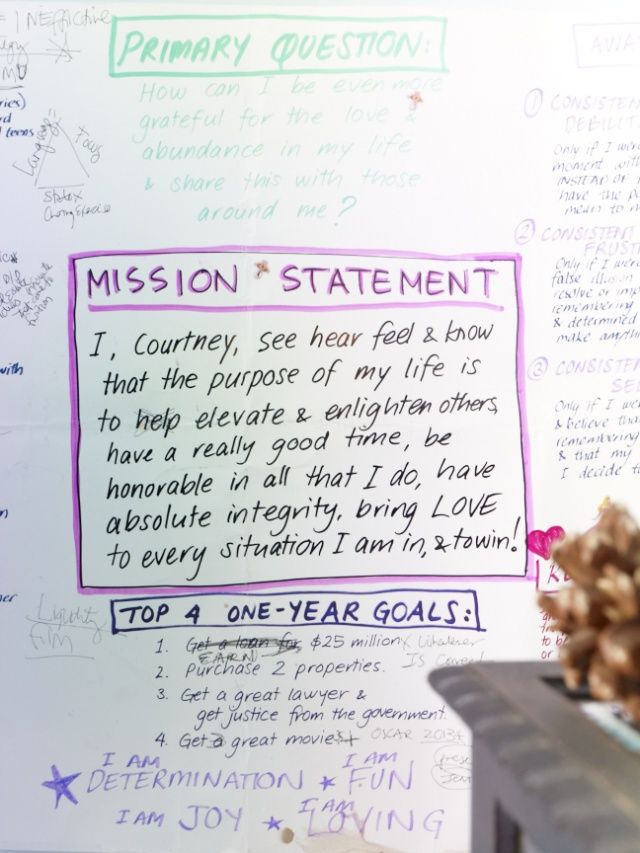 = INEFFECTIVE
PRIMARY QUESTION:
How can I be even more
grateful for the love &
abundance in my life
& share this with those
around me?
Language =
Focus
MISSION STATEMENT
I, Courtney, see hear feel & know
that the purpose of my life is
to help elevate & enlighten others,
have a really good time, be
honorable in all that I do, have
absolute integrity, bring LOVE
to every situation I am in, & to win!
Liquidity
FILM
TOP 4 ONE-YEAR GOALS:
1. Get a loan for $25 million
EARN
2. Purchase 2 properties.
3. Get a great lawyer &
get justice from the government.
4. Get a great movie OSCAR 2013
I AM I AM
DETERMINATION FUN
I AM JOY I AM LOVING
AWAY
1 CONSISTENT
Only if I were
moment with
INSTEAD OF
have the
mean to
2 CONSISTENT
FRUST
Only if I were
false illusion
resolve or
remembering
& determined
make
3 CONSISTENT
SE
Only if I we
& believe tha
remembering
& that my
I decide t